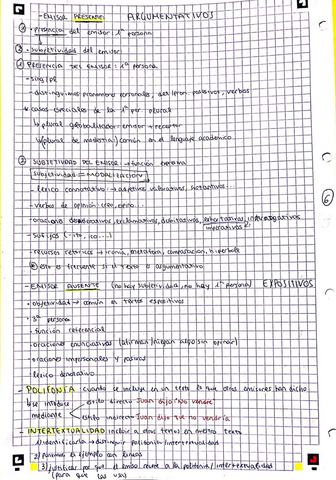 - EMISOR PRESENTE: ARGUMENTATIVOS
① · presencia del emisor: 1ª persona
② · subjetividad del emisor
① PRESENCIA DEL EMISOR: 1ª persona
- sing/pl
- distinguimos pronombres personales, det/pron. posesivos, verbos
* casos especiales de la 1ª per plural
↳ plural globalizador: emisor + receptor
↳ plural de modestia: común en el lenguaje académico
② SUBJETIVIDAD DEL EMISOR → función expresiva
subjetividad = MODALIZACIÓN
- léxico connotativo → adjetivos valorativos, sustantivos...
- verbos de opinión: creo, opino...
- oraciones exclamativas, dubitativas, interrogativas
imperativas
- sufijos (-ito, ico...)
- recursos retóricos → ironía, metáfora, comparación, hipérbole
esto es frecuente si el texto es argumentativo
- EMISOR AUSENTE (no hay subjetividad, no hay 1ª persona) EXPOSITIVOS
· objetividad → común en textos expositivos
· 3ª persona
· función referencial
· oraciones enunciativas (afirman/niegan algo sin opinar)
· oraciones impersonales y pasivas
· léxico denotativo
- POLIFONÍA cuando se incluye en un texto lo que otros emisores han dicho
se introduce mediante
estilo directo Juan dijo "No vendré"
estilo indirecto Juan dijo que no vendría
- INTERTEXTUALIDAD incluir a otros textos en nuestro texto
1) identificarla → distinguir polifonía/intertextualidad
2) ponemos el ejemplo con líneas
3) justificar por qué el emisor recurre a la polifonía/intertextualidad
(para qué las usa)
6